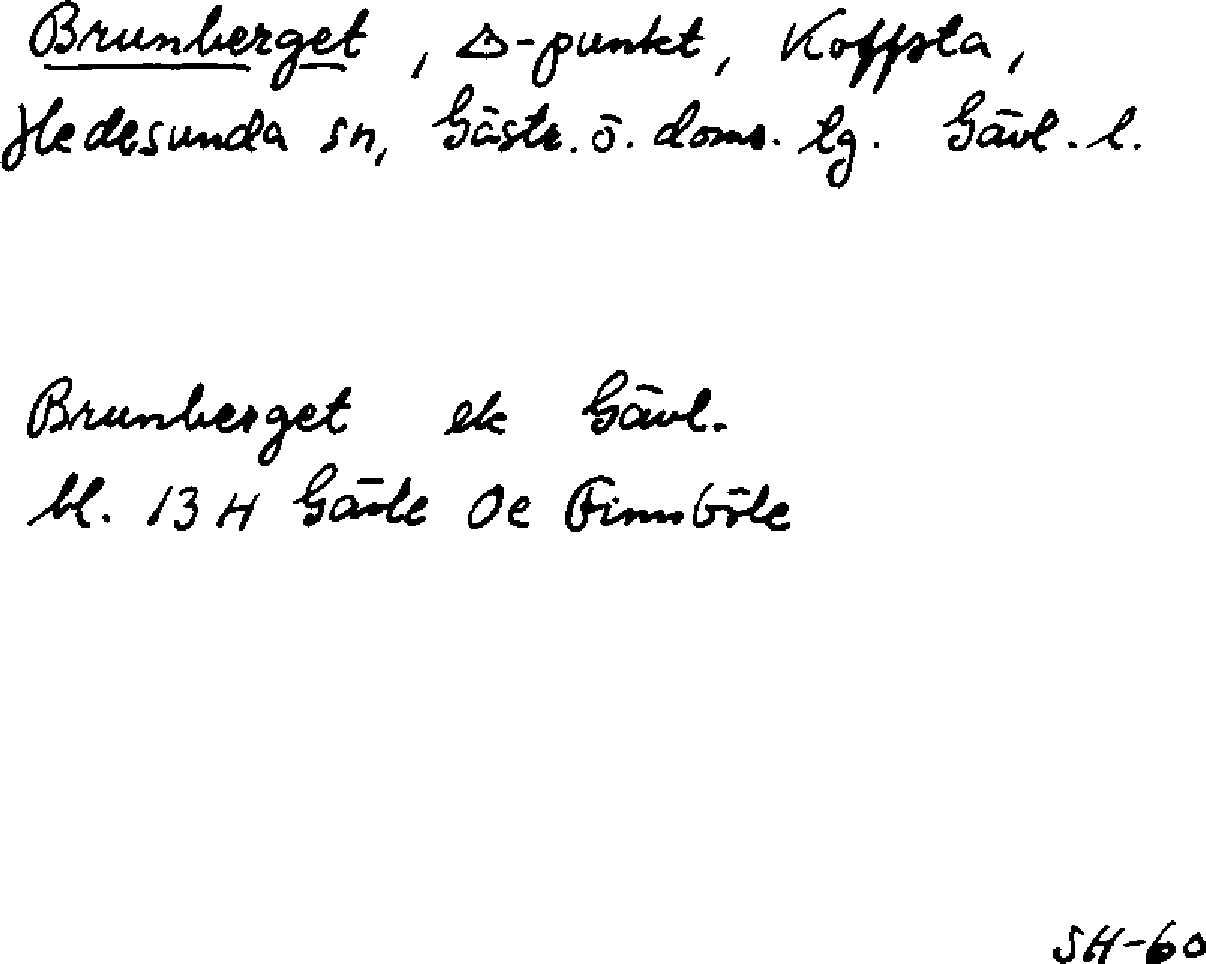 Brunberget, △-punkt, Koffsta,
Hedesunda sn, Gästr. ö. doms. tg. Gävl. l.
Brunberget ek Gävl.
bl. 13 H Gävle 0e Finnböle
SH-60